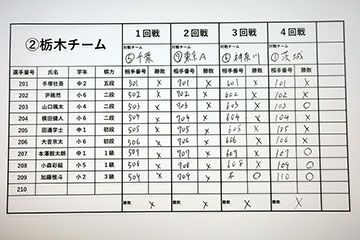 ②栃木チーム
1回戦 2回戦 3回戦 4回戦
対戦チーム 対戦チーム 対戦チーム 対戦チーム
千葉 東京A 神奈川 茨城
選手番号 氏名 学年 棋力 相手番号 勝敗 相手番号 勝敗 相手番号 勝敗 相手番号 勝敗
201 手塚壮吾 中2 五段 501 × 701 × 601 × 101 ×
202 小6 二段 502 × 702 × 602 × 102 ×
203 山口颯太 小4 二段 503 × 703 × 603 × 103 ○
204 横田健人 小6 二段 504 × 704 × 604 × 104 ×
205 田邊学士 中1 初段 505 × 705 × 605 × 105 ×
206 大音京太 小6 初段 506 × 706 × 606 × 106 ×
207 本澤観太朗 中1 1級 507 × 707 × 607 × 107 ○
208 小森彩絵 小5 1級 508 × 708 × 608 × 108 ○
209 加藤惟斗 小2 3級 509 × 709 × ○ 110 ○
210
勝敗 × 勝敗 × 勝敗 × 勝敗 ×